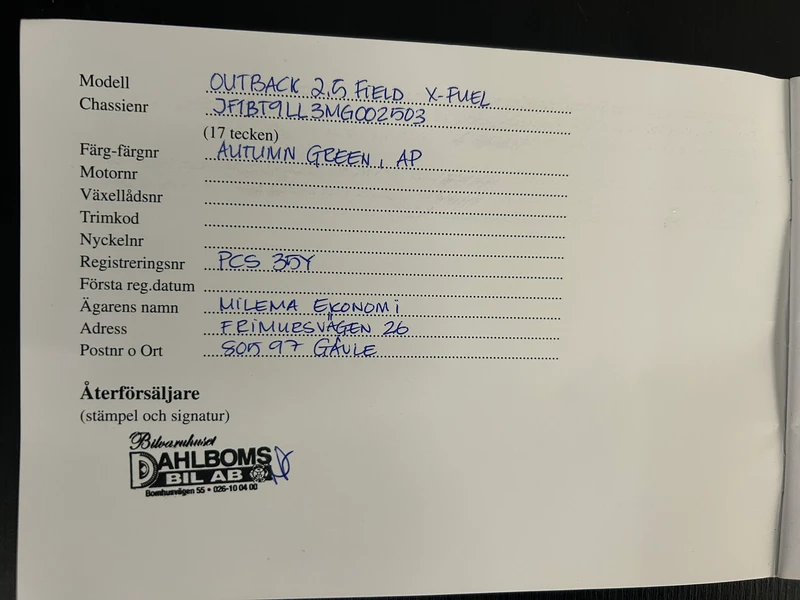 Modell OUTBACK 2,5 FIELD X-FUEL
Chassienr JF1BT9LL3MG002503
(17 tecken)
Färg-färgnr AUTUMN GREEN, AP
Motornr
Växellådsnr
Trimkod
Nyckelnr
Registreringsnr PCS 35Y
Första reg.datum
Ägarens namn MILEMA EKONOMI
Adress FRIMURSVÄGEN 26
Postnr o Ort 805 97 GÄVLE
Återförsäljare
(stämpel och signatur)
Bilvaruhuset
DAHLBOMS
BIL AB
Bomhusvägen 55 • 026-10 04 00